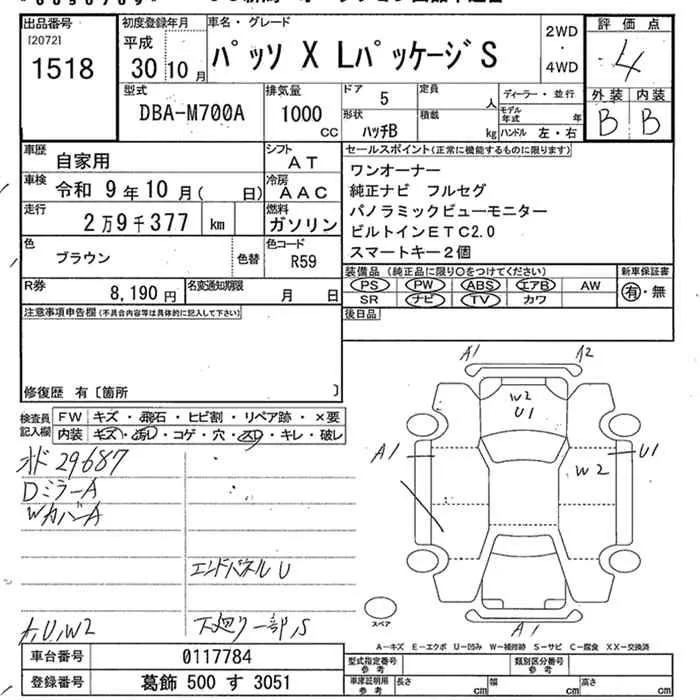 出品番号 [2072]
1518
初度登録年月
平成
30年10月
車名・グレード
パッソ X LパッケージS
2WD
・
4WD
評価点
4
外装 内装
B B
型式
DBA-M700A
排気量
1000
CC
ドア 5
形状 ハッチB
定員 人
積載 kg
ディーラー・並行
モデル年式 年
ハンドル 左・右
車歴 自家用
シフト AT
車検 令和 9年10月( 日)
冷房 AAC
走行 2万9千377 km
燃料 ガソリン
色 ブラウン
色替
色コード R59
R券 8,190円
名変通知期限 月 日
セールスポイント(正常に機能するものに限ります)
ワンオーナー
純正ナビ フルセグ
パノラミックビューモニター
ビルトインETC2.0
スマートキー2個
装備品(純正品に限り○をつけてください)
PS PW ABS エアB AW
SR ナビ TV カワ
新車保証書
有・無
後日品
注意事項申告欄(不具合内容等は具体的に記入して下さい)
修復歴 有〔箇所 〕
検査員記入欄
FW キズ・飛石・ヒビ割・リペア跡・×要
内装 キズ・汚レ・コゲ・穴・スレ・キレ・破レ
オド 29687
DミラーA
WカバーA
エンドパネルU
A,U,W2
下廻り一部S
A1
A2
W2
U1
A1
U1
W2
A1
スペア
A-キズ E-エクボ U-凹み W-補修跡 S-サビ C-腐食 XX-交換済
車台番号 0117784
登録番号 葛飾 500 す 3051
型式指定番号 参考
類別区分番号 参考
車庫証明用 参考
長さ cm
幅 cm
高さ cm